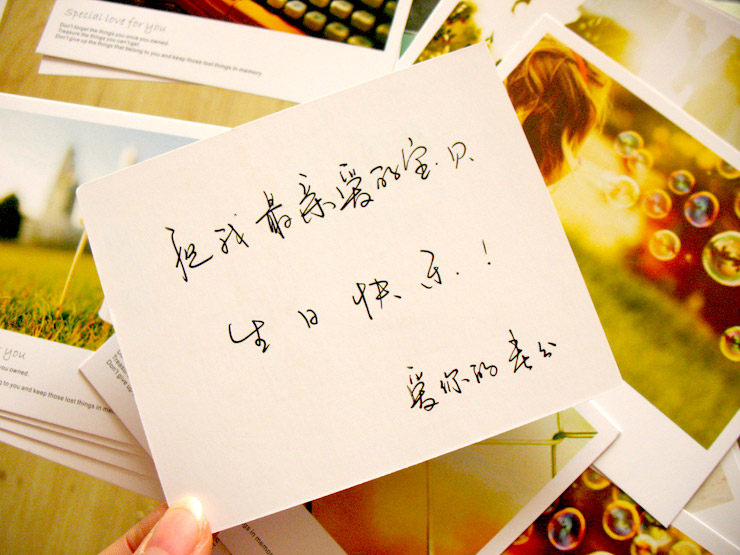 Special love for you
Don't forget the things you once you owned.
Treasure the things you can't get
Don't give up the things that belong to you and keep those lost things in memory
祝我最亲爱的宝贝
生日快乐！
爱你的老公
you
owned.
to you and keep those lost things in mem